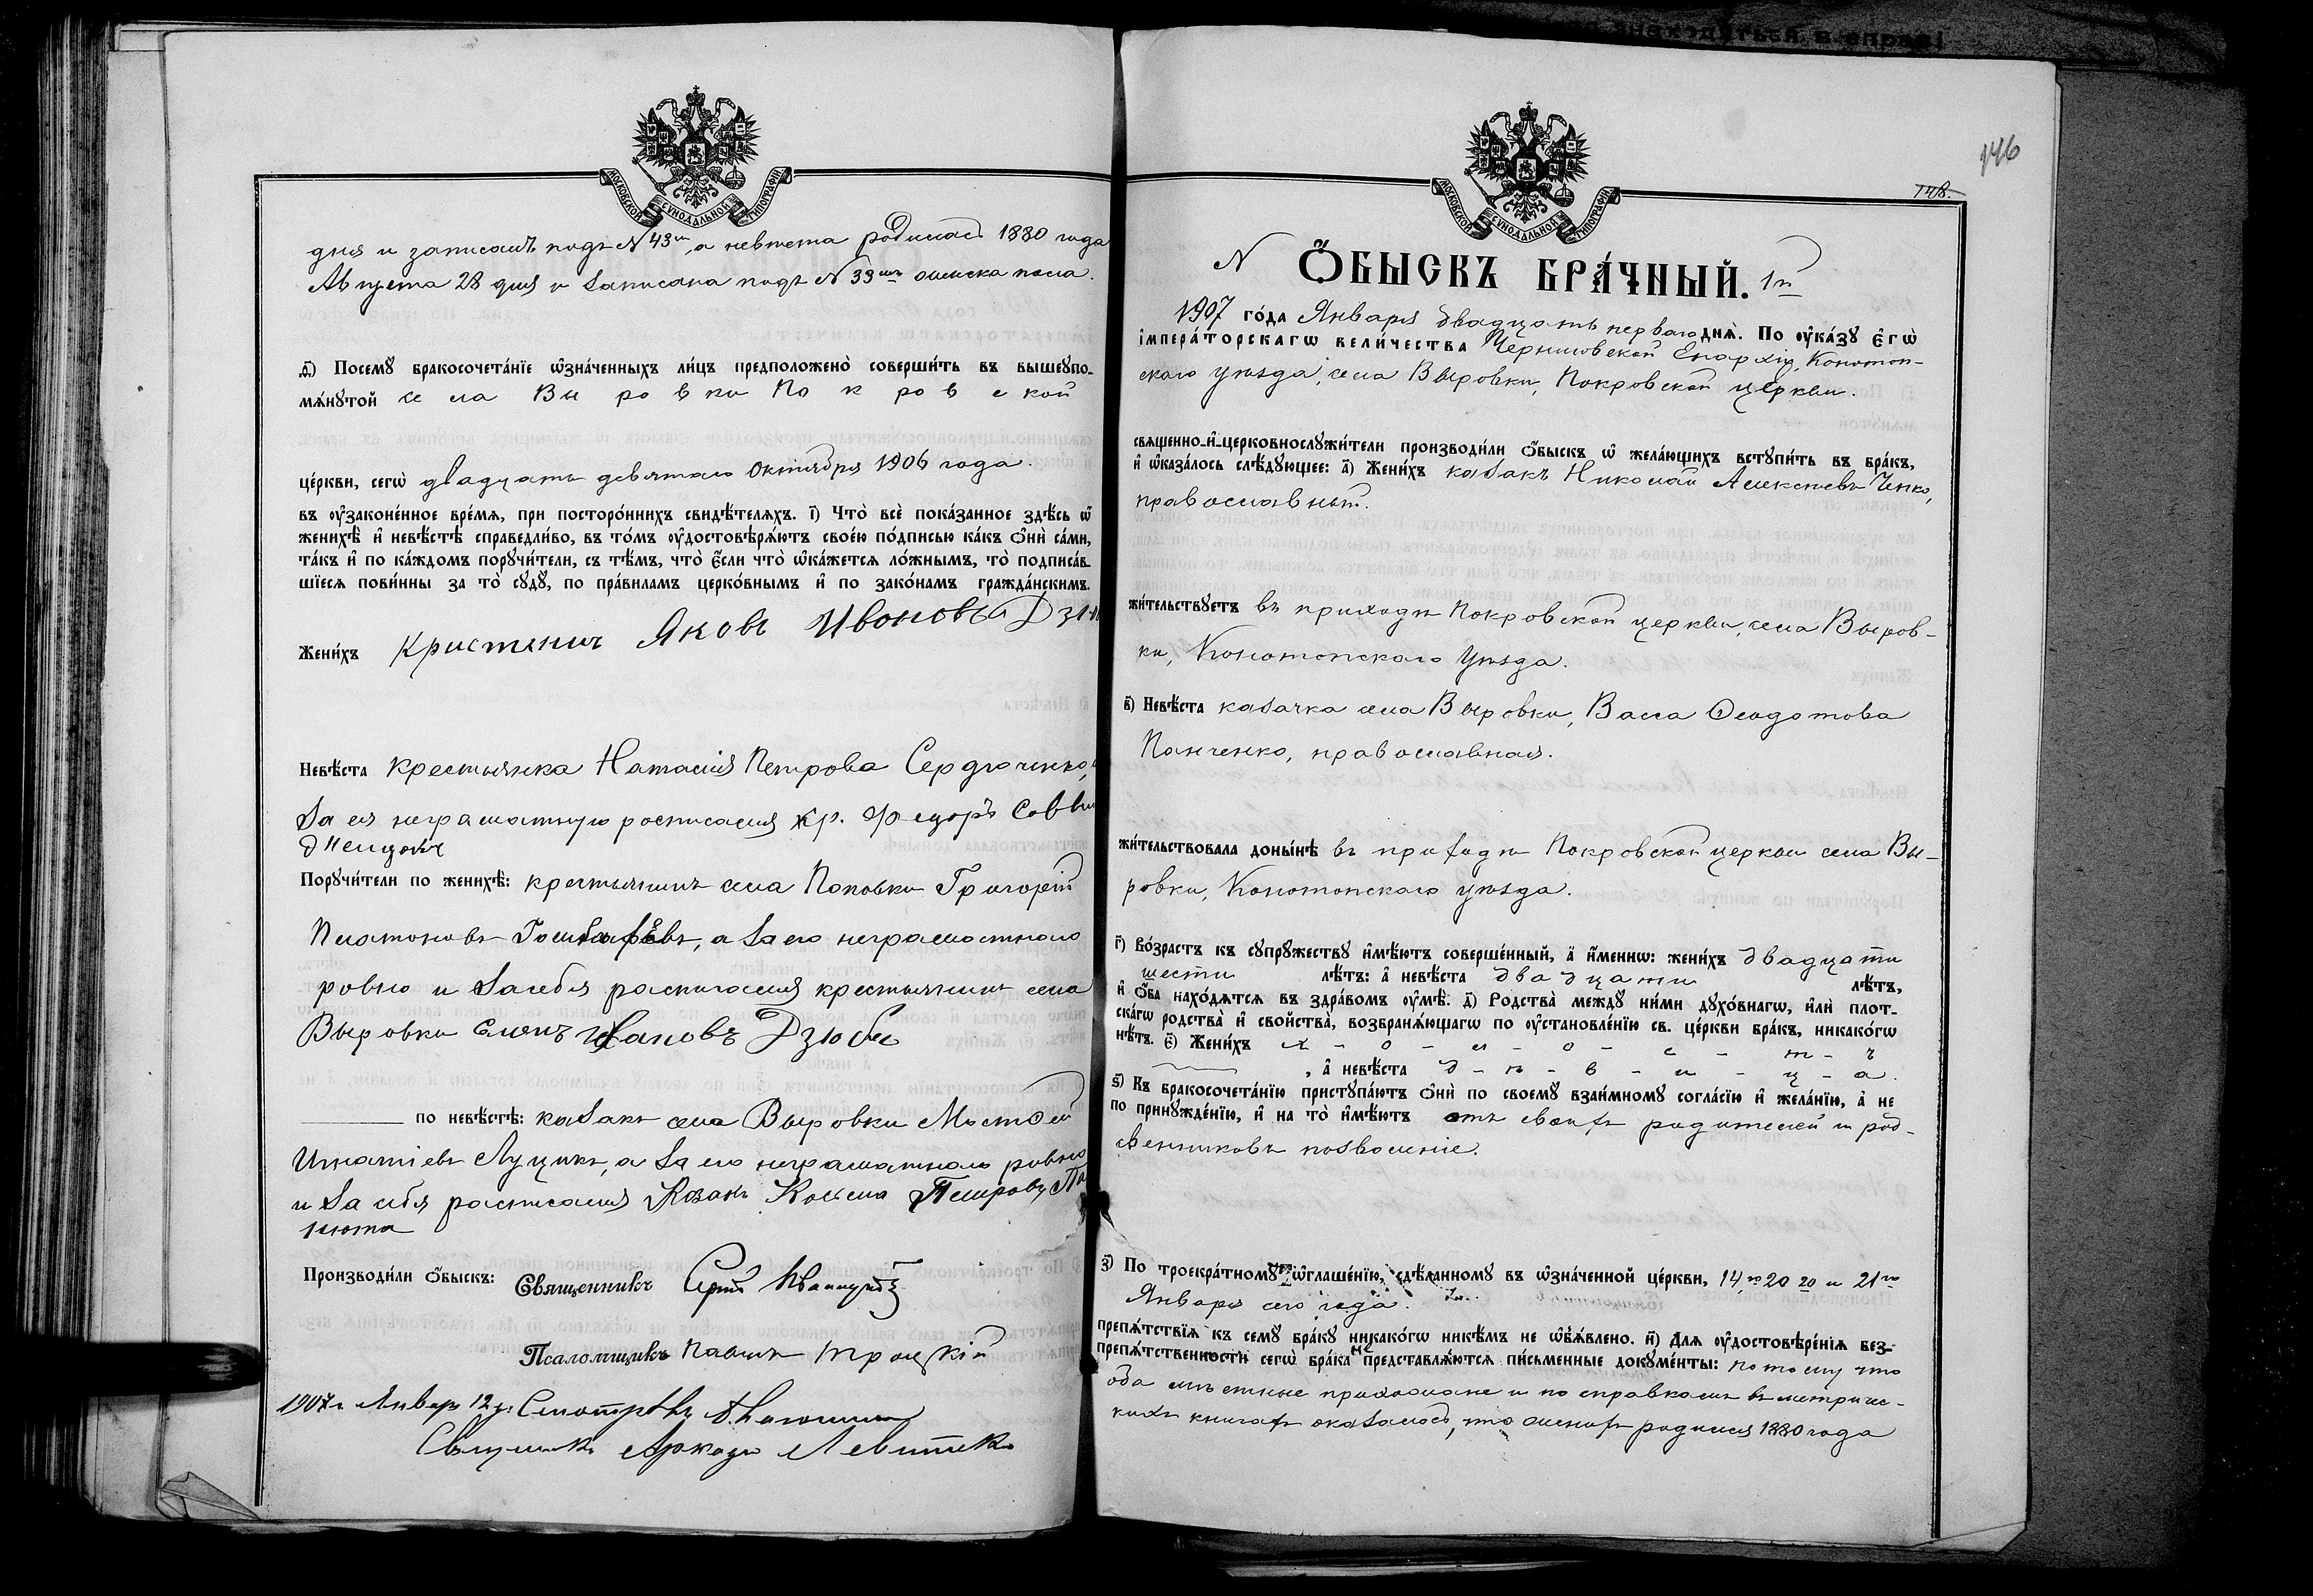 МОСКОВСКОЙ СѴНОДАЛЬНОЙ ТИПОГРАФІИ
дня и записанъ подъ № 43м, а невѣста родилась 1880 года
Августа 28 дня и записана подъ № 33мъ
д҃і) Посемꙋ бракосочета́нїе ѡ҆зна́ченныхъ ли́цъ предположено̀ соверши́ть въ вышеꙋпо-
мѧ́нꙋтой села Выровки Покровской
це́ркви, сегѡ̀ двадцать девятаго Октября 1906 года.
въ ᲂу҆законе́нное вре́мѧ, при посторо́ннихъ свидѣ́телѧхъ. і҃) Что̀ всѐ пока́занное здѣ́сь ѡ҆
женихѣ̀ и҆ невѣ́стѣ справедли́во, въ то́мъ ᲂу҆достовѣрѧ́ютъ свое́ю по́дписью ка́къ ѻ҆нѝ са́ми,
та́къ и҆ по ка́ждомъ порꙋчи́тели, съ тѣ́мъ, что̀ є҆́сли что̀ ѡ҆ка́жетсѧ ло́жнымъ, то̀ подписа́в-
шїесѧ пови́нны за то̀ сꙋдꙋ̀, по пра́виламъ церко́внымъ и҆ по зако́намъ гражда́нскимъ.
Жени́хъ Яковъ Ивановъ
Невѣ́ста Крестьянка Наталія Петрова Сердюченко, а
за ея неграмотную росписался кр. Федоръ Савви
Порꙋчи́тели по женихѣ̀: крестьянинъ села Поповки Григорій
Платоновъ а за его неграмотнаго
ровно и за себя расписался крестьянинъ села
Выровки Ивановъ Дзюба
по невѣ́стѣ: казакъ села Выровки
Игнатіевъ Луцикъ, а за его неграмотнаго ровно
и за себя расписался Козакъ Косьма Петровъ
Производи́ли ѻ҆́быскъ: Священникъ
Псаломщикъ Павелъ Троцкій
1907 г. Январь 12 д. Смотрѣлъ
Священникъ Аркадій
146
148.
МОСКОВСКОЙ СѴНОДАЛЬНОЙ ТИПОГРАФІИ
№ Ѻ҆́БЫСКЪ БРА́ЧНЫЙ. 1й
1907 го́да Января двадцать перваго днѧ̀. По ᲂу҆ка́зꙋ є҆гѡ̀
і҆мпера́торскагѡ вели́чества Черниговской Епархіи, Конотоп-
скаго уѣзда, села Выровки, Покровской церкви.
свѧщенно-и҆-церковнослꙋжи́тели производи́ли ѻ҆́быскъ ѡ҆ жела́ющихъ встꙋпи́ть въ бра́къ,
и҆ ѡ҆каза́лось слѣ́дꙋющее: а҃) Жени́хъ казакъ Николай Алексѣевъ Ченко,
православный.
жи́тельствꙋетъ въ приходѣ Покровской церкви, села Выров-
ки, Конотопскаго уѣзда.
в҃) Невѣ́ста казачка села Выровки, Васса Ѳеодотова
Панченко, православная.
жи́тельствовала доны́нѣ въ приходѣ Покровской церкви села Вы-
ровки, Конотопскаго уѣзда.
г҃) Во́зрастъ къ сꙋпрꙋ́жествꙋ и҆мѣ́ютъ соверше́нный, а҆ и҆́менно: жени́хъ двадцати
шести лѣ́тъ: а҆ невѣ́ста двадцати лѣ́тъ,
и҆ ѻ҆́ба нахо́дѧтсѧ въ здра́вомъ ᲂу҆мѣ̀. д҃) Родства̀ междꙋ̀ ни́ми дꙋхо́внагѡ, и҆лѝ плот-
ска́гѡ родства̀ и҆ сво́йства̀, возбранѧ́ющагѡ по ᲂу҆становле́нїю св. це́ркви бра́къ, никако́гѡ
нѣ́тъ. є҃) Жени́хъ х - о - л - о - с - т - ъ
, а҆ невѣ́ста д - ѣ - в - и - ц - а.
ѕ҃) Къ бракосочета́нїю пристꙋпа́ютъ ѻ҆нѝ по своемꙋ̀ взаи́мномꙋ согла́сїю и҆ жела́нїю, а҆ не
по принꙋжде́нїю, и҆ на то̀ и҆мѣ́ютъ отъ своихъ родителей и род-
ственниковъ позволеніе.
з҃) По троекра́тномꙋ ѡ҆глаше́нїю, сдѣ́ланномꙋ въ ѡ҆зна́ченной це́ркви, 14го, 20 20 и 21го
Января сего года.
препѧ́тствїѧ къ семꙋ̀ бра́кꙋ никако́гѡ никѣ́мъ не ѡ҆б̾ѧ́влено. и҃) Длѧ ᲂу҆достовѣре́нїѧ без-
препѧ́тственности сегѡ̀ бра́ка не представлѧ́ютсѧ пи́сьменные докꙋме́нты: потому что
оба мѣстные прихожане и по справкамъ въ метричес-
кихъ книгахъ оказалось, что женихъ родился 1880 года